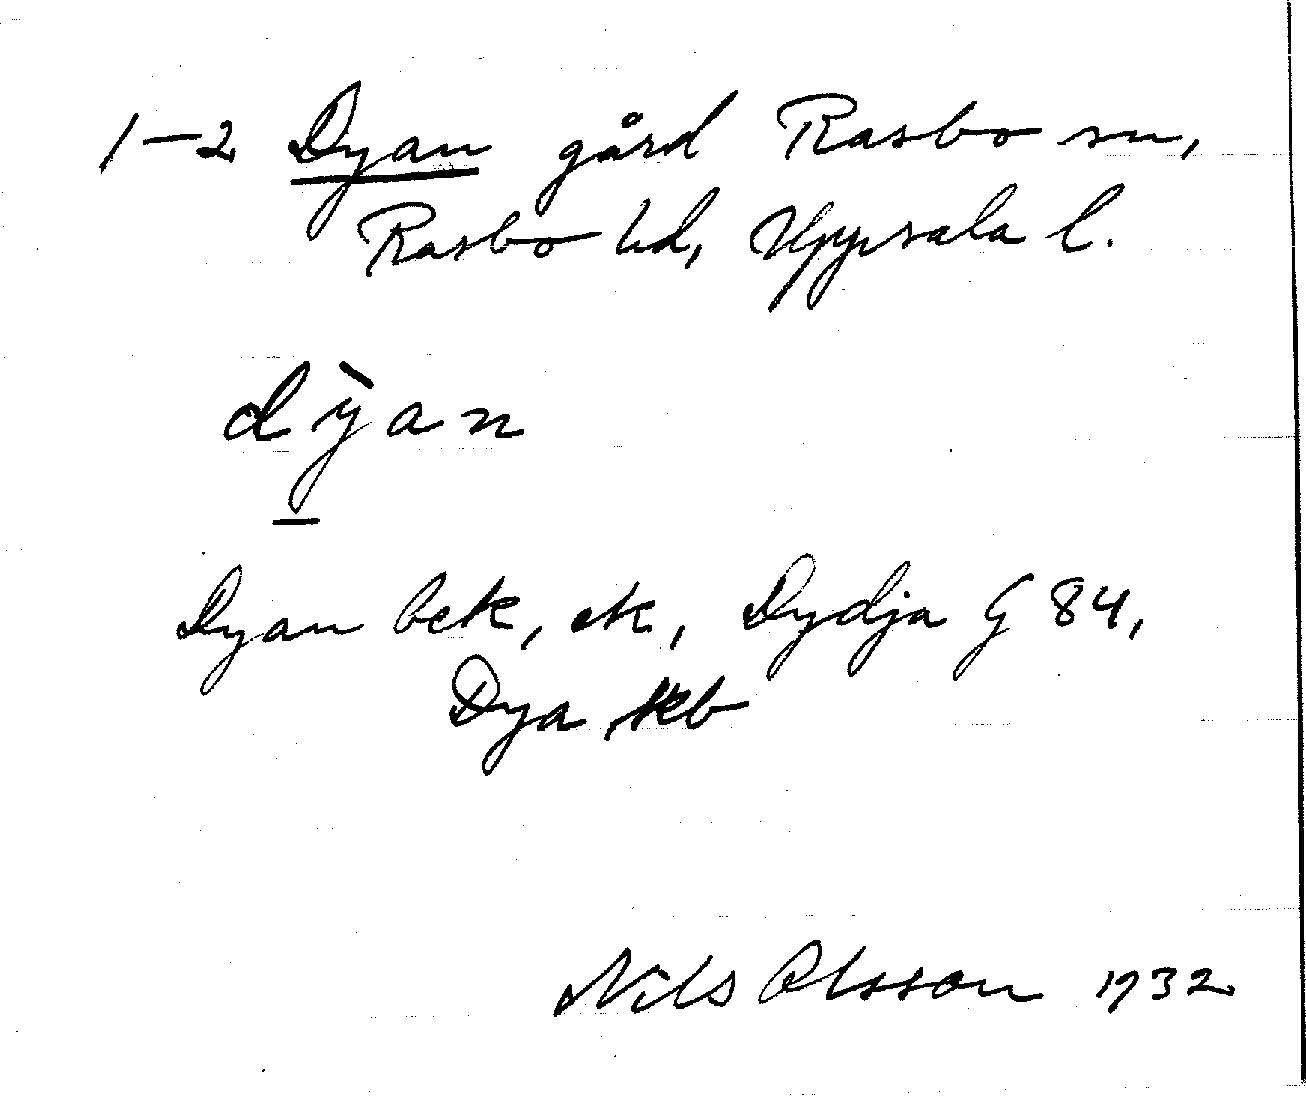 1–2 Dyan gård Rasbo sn,
Rasbo hd, Uppsala l.
dỳ̱an
Dyan bek, ek, Dydja G 84,
Dya, kb
Nils Olsson 1932